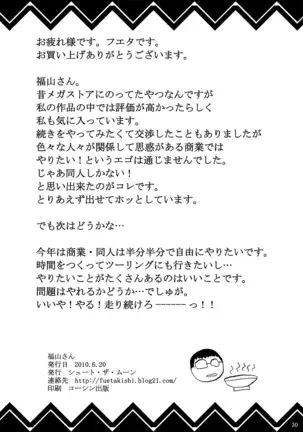 お疲れ様です。フエタです。
お買い上げありがとうございます。
福山さん。
昔メガストアにのってたやつなんですが
私の作品の中では評価が高かったらしく
私も気に入っています。
続きをやってみたくて交渉したこともありましたが
色々な人々が関係して思惑がある商業では
やりたい！というエゴは通じませんでした。
じゃあ同人しかない！
と思い出来たのがコレです。
とりあえず出せてホッとしています。
でも次はどうかな…
今年は商業・同人は半分半分で自由にやりたいです。
時間をつくってツーリングにも行きたいし…
やりたいことがたくさんあるのはいいことです。
問題はやれるかどうか…でしゅが。
いいや！やる！走り続けろ ーーーーーっ！！
福山さん
発行日　2010.6.20
発行　シュート・ザ・ムーン
連絡先　http://fuetakishi.blog21.com/
印刷　コーシン出版
30